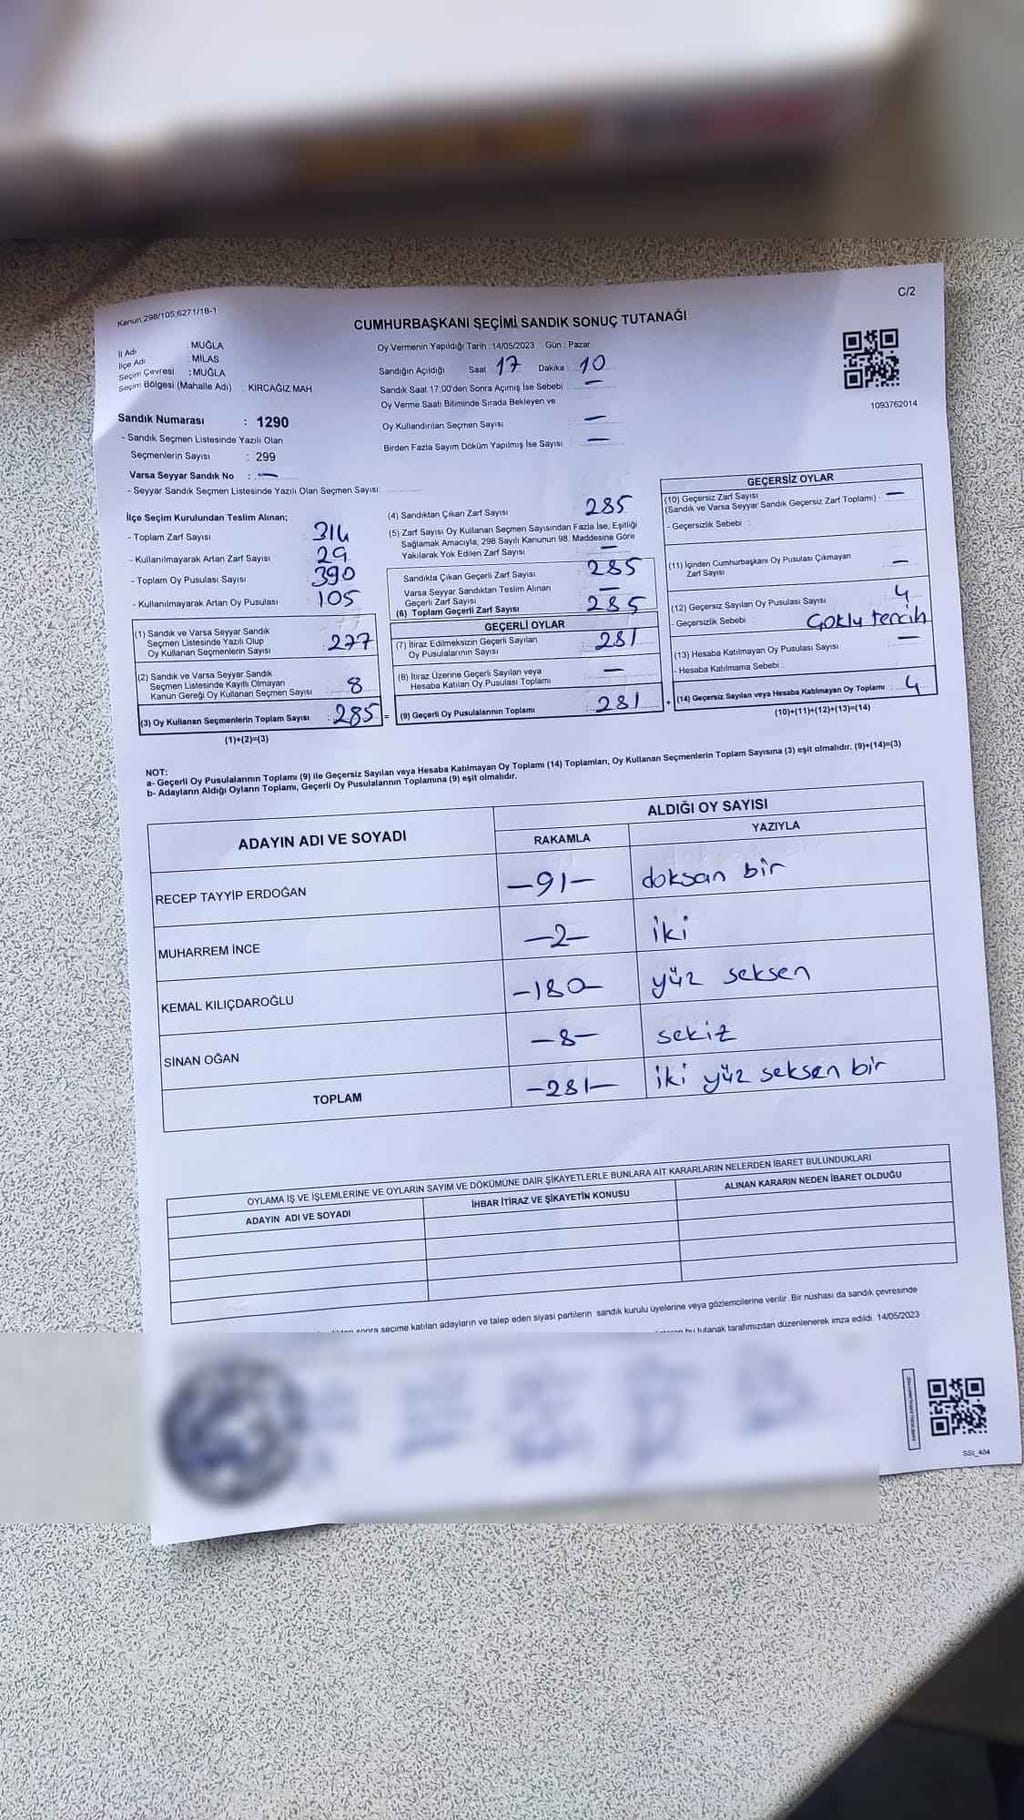 Kanun 298/105;6271/18-1
C/2
CUMHURBAŞKANI SEÇİMİ SANDIK SONUÇ TUTANAĞI
İl Adı : MUĞLA
İlçe Adı : MİLAS
Seçim Çevresi : MUĞLA
Seçim Bölgesi (Mahalle Adı) : KIRCAĞIZ MAH
Oy Vermenin Yapıldığı Tarih : 14/05/2023 Gün : Pazar
Sandığın Açıldığı Saat 17 Dakika 10
Sandık Saat 17:00'den Sonra Açımış İse Sebebi : —
Oy Verme Saati Bitiminde Sırada Bekleyen ve
Oy Kullandırılan Seçmen Sayısı —
Birden Fazla Sayım Döküm Yapılmış İse Sayısı —
1093762014
Sandık Numarası : 1290
- Sandık Seçmen Listesinde Yazılı Olan
Seçmenlerin Sayısı : 299
Varsa Seyyar Sandık No : —
- Seyyar Sandık Seçmen Listesinde Yazılı Olan Seçmen Sayısı:
İlçe Seçim Kurulundan Teslim Alınan;
- Toplam Zarf Sayısı 314
- Kullanılmayarak Artan Zarf Sayısı 29
- Toplam Oy Pusulası Sayısı 390
- Kullanılmayarak Artan Oy Pusulası 105
(1) Sandık ve Varsa Seyyar Sandık
Seçmen Listesinde Yazılı Olup
Oy Kullanan Seçmenlerin Sayısı : 277
(2) Sandık ve Varsa Seyyar Sandık
Seçmen Listesinde Kayıtlı Olmayan
Kanun Gereği Oy Kullanan Seçmen Sayısı : 8
(3) Oy Kullanan Seçmenlerin Toplam Sayısı : 285 =
(1)+(2)=(3)
(4) Sandıktan Çıkan Zarf Sayısı 285
(5) Zarf Sayısı Oy Kullanan Seçmen Sayısından Fazla İse, Eşitliği
Sağlamak Amacıyla, 298 Sayılı Kanunun 98. Maddesine Göre
Yakılarak Yok Edilen Zarf Sayısı —
Sandıkta Çıkan Geçerli Zarf Sayısı 285
Varsa Seyyar Sandıktan Teslim Alınan
Geçerli Zarf Sayısı —
(6) Toplam Geçerli Zarf Sayısı 285
GEÇERLİ OYLAR
(7) İtiraz Edilmeksizin Geçerli Sayılan
Oy Pusulalarının Sayısı : 281
(8) İtiraz Üzerine Geçerli Sayılan veya
Hesaba Katılan Oy Pusulası Toplamı : —
(9) Geçerli Oy Pusulalarının Toplamı : 281 +
GEÇERSİZ OYLAR
(10) Geçersiz Zarf Sayısı
(Sandık ve Varsa Seyyar Sandık Geçersiz Zarf Toplamı) : —
- Geçersizlik Sebebi :
(11) İçinden Cumhurbaşkanı Oy Pusulası Çıkmayan
Zarf Sayısı —
(12) Geçersiz Sayılan Oy Pusulası Sayısı 4
- Geçersizlik Sebebi Çoklu tercih
(13) Hesaba Katılmayan Oy Pusulası Sayısı —
- Hesaba Katılmama Sebebi :
(14) Geçersiz Sayılan veya Hesaba Katılmayan Oy Toplamı : 4
(10)+(11)+(12)+(13)=(14)
NOT:
a- Geçerli Oy Pusulalarının Toplamı (9) ile Geçersiz Sayılan veya Hesaba Katılmayan Oy Toplamı (14) Toplamları, Oy Kullanan Seçmenlerin Toplam Sayısına (3) eşit olmalıdır. (9)+(14)=(3)
b- Adayların Aldığı Oyların Toplamı, Geçerli Oy Pusulalarının Toplamına (9) eşit olmalıdır.
ADAYIN ADI VE SOYADI
ALDIĞI OY SAYISI
RAKAMLA YAZIYLA
RECEP TAYYİP ERDOĞAN —91— doksan bir
MUHARREM İNCE —2— iki
KEMAL KILIÇDAROĞLU —180— yüz seksen
SİNAN OĞAN —8— sekiz
TOPLAM —281— iki yüz seksen bir
OYLAMA İŞ VE İŞLEMLERİNE VE OYLARIN SAYIM VE DÖKÜMÜNE DAİR ŞİKAYETLERLE BUNLARA AİT KARARLARIN NELERDEN İBARET BULUNDUKLARI
ADAYIN ADI VE SOYADI İHBAR İTİRAZ VE ŞİKAYETİN KONUSU ALINAN KARARIN NEDEN İBARET OLDUĞU
sonra seçime katılan adayların ve talep eden siyasi partilerin sandık kurulu üyelerine veya gözlemcilerine verilir. Bir nüshası da sandık çevresinde
bu tutanak tarafımızdan düzenlenerek imza edildi. 14/05/2023
SSI_404